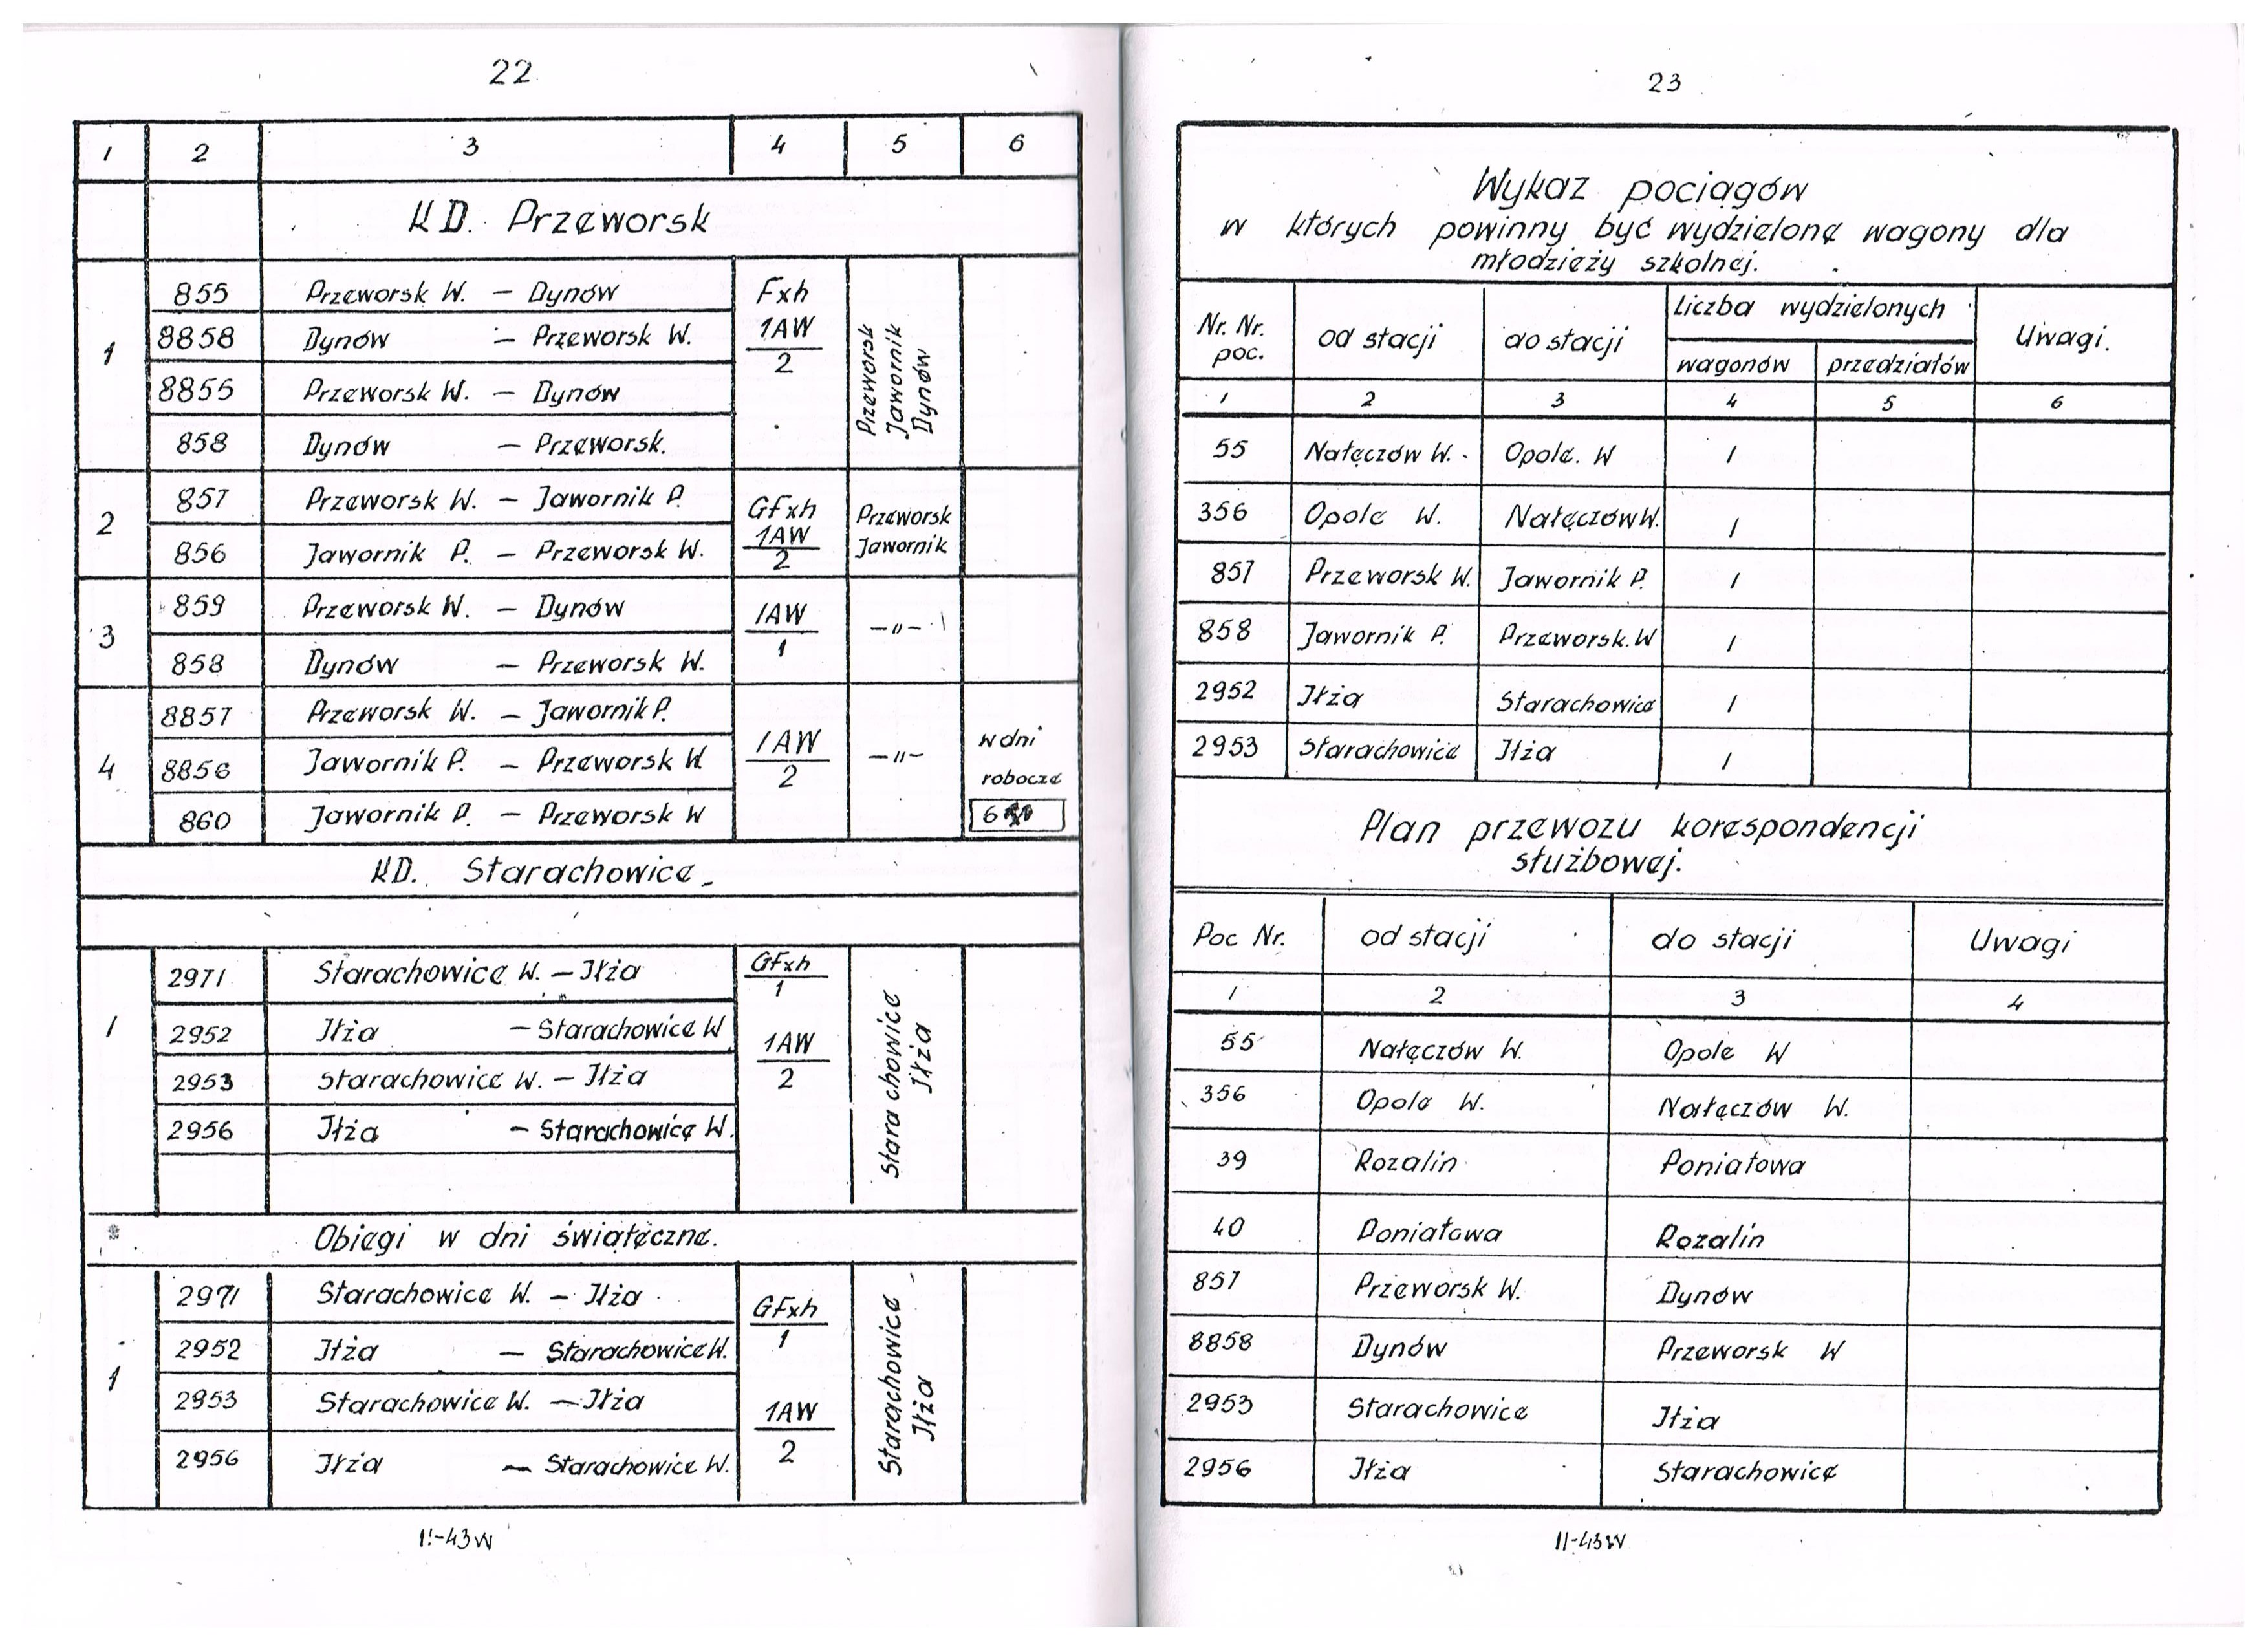 22
1 2 3 4 5 6
KD. Przeworsk
1
855 Przeworsk W. – Dynów Fxh
8858 Dynów – Przeworsk W. 1AW
2
8855 Przeworsk W. – Dynów
858 Dynów – Przeworsk.
Przeworsk
Jawornik
Dynów
2
857 Przeworsk W. – Jawornik P. GFxh Przeworsk
856 Jawornik P. – Przeworsk W. 1AW Jawornik
2
3
859 Przeworsk W. – Dynów 1AW –"–
858 Dynów – Przeworsk W. 1
4
8857 Przeworsk W. – Jawornik P.
8856 Jawornik P. – Przeworsk W 1AW –"– w dni
2 robocze
860 Jawornik P. – Przeworsk W 6
KD. Starachowice
1
2971 Starachowice W. – Iłża GFxh
1
2952 Iłża – Starachowice W 1AW
2953 Starachowice W. – Iłża 2
2956 Iłża – Starachowice W.
Starachowice
Iłża
Obiegi w dni świąteczne.
1
2971 Starachowice W. – Iłża GFxh
2952 Iłża – Starachowice W. 1
2953 Starachowice W. – Iłża 1AW
2956 Iłża – Starachowice W. 2
Starachowice
Iłża
II-43W
23
Wykaz pociągów
w których powinny być wydzielone wagony dla
młodzieży szkolnej.
Nr. Nr. poc. od stacji do stacji Liczba wydzielonych Uwagi.
wagonów przedziałów
1 2 3 4 5 6
55 Nałęczów W. Opole. W 1
356 Opole W. Nałęczów W. 1
857 Przeworsk W. Jawornik P. 1
858 Jawornik P. Przeworsk. W 1
2952 Iłża Starachowice 1
2953 Starachowice Iłża 1
Plan przewozu korespondencji
służbowej.
Poc Nr. od stacji do stacji Uwagi
1 2 3 4
55 Nałęczów W. Opole W
356 Opole W. Nałęczów W.
39 Rozalin Poniatowa
40 Poniatowa Rozalin
857 Przeworsk W. Dynów
8858 Dynów Przeworsk W
2953 Starachowice Iłża
2956 Iłża Starachowice
II-43W